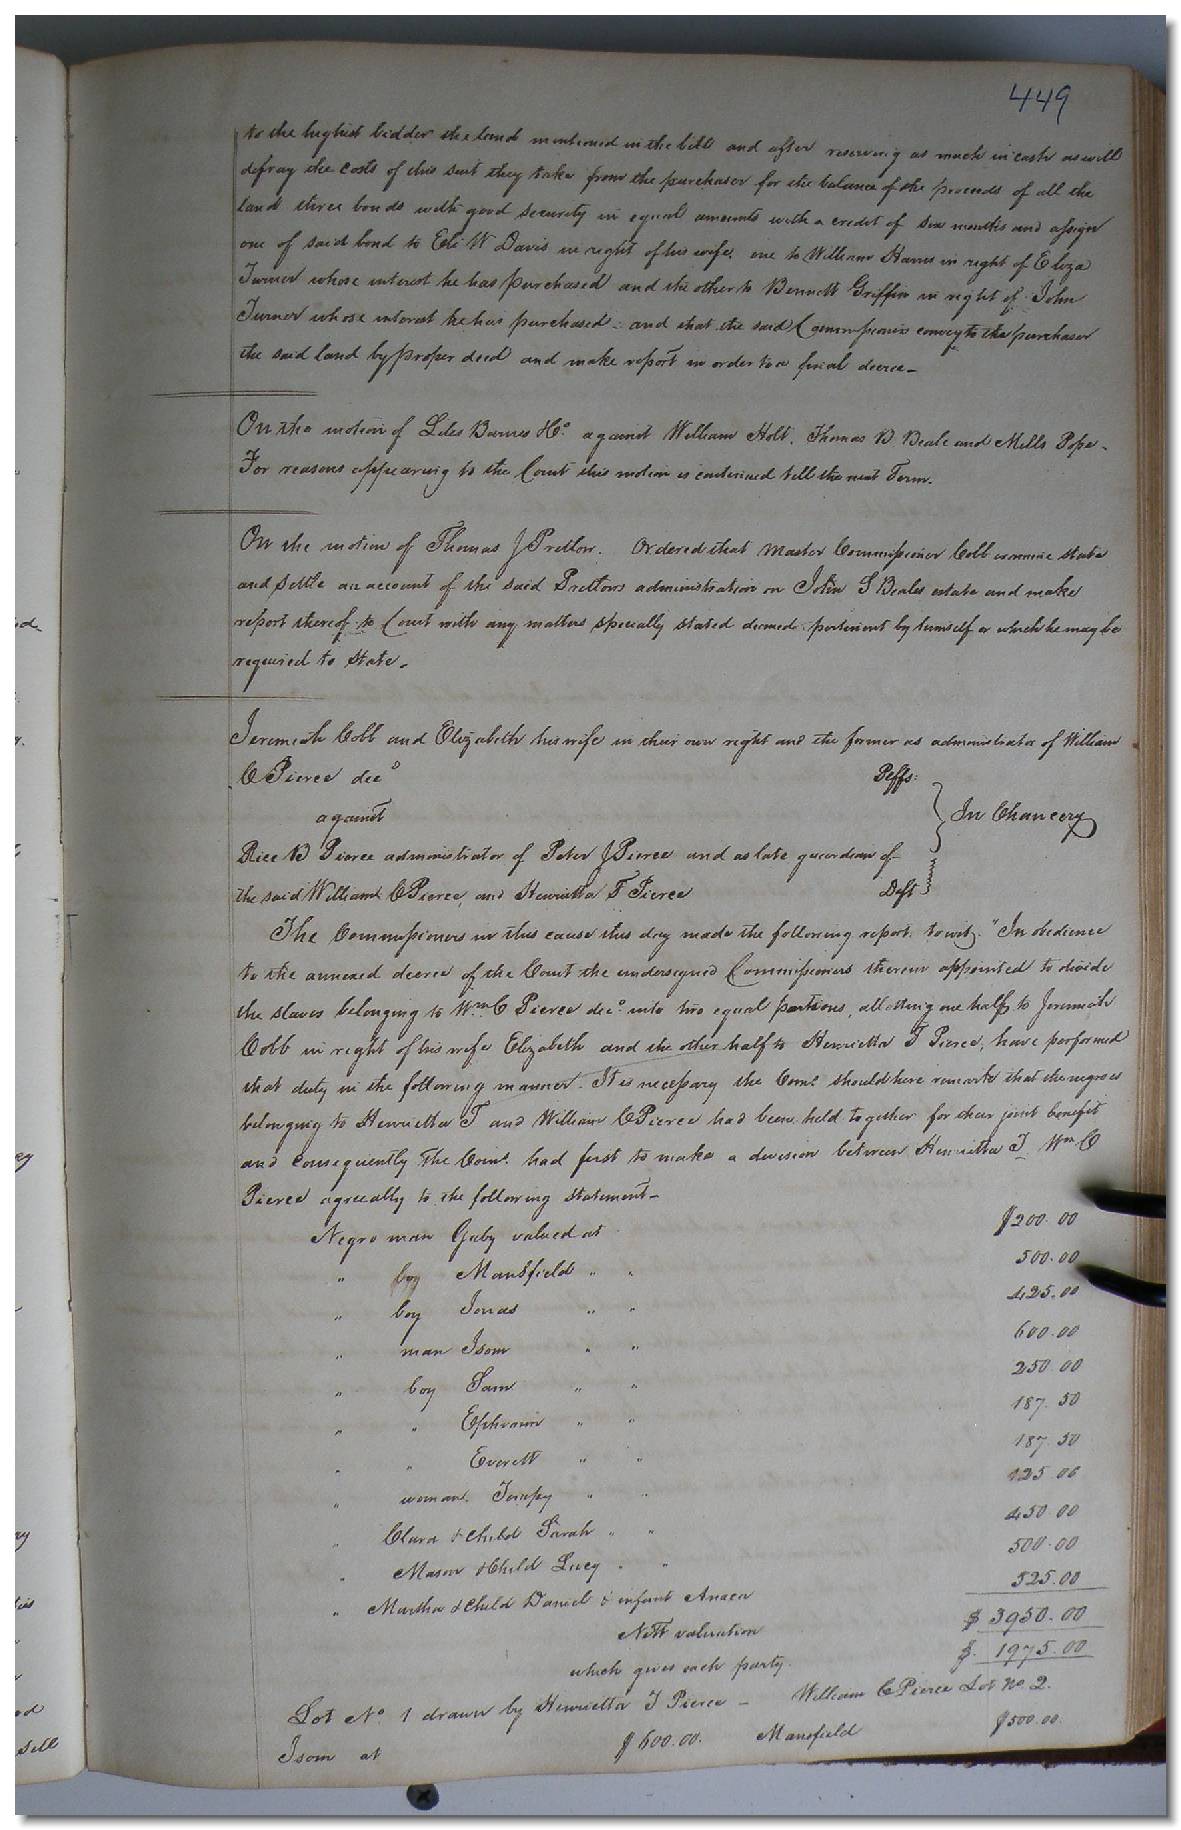 449
to the highest bidder the land mentioned in the bill and after reserving as much in cash as will
defray the costs of this suit they take from the purchaser for the balance of the proceeds of all the
land three bonds with good security in equal amounts with a credit of six months and assign
one of said bond to Eli W Davis in right of his wife, one to William Harris in right of Eliza
Turner whose interest he has purchased and the other to Bennett Griffin in right of John
Turner whose interest he has purchased - and that the said Commissioner convey to the purchaser
the said land by proper deed and make report in order to a final decree -
On the motion of Liles Barnes against William Holt, Thomas B. Beale and Mills Pope -
For reasons appearing to the Court this motion is continued till the next Term.
On the motion of Thomas J Pretlow. Ordered that Master Commissioner Cobb examine state
and settle an account of the said Pretlows administration on John S Beales estate and make
report thereof to Court with any matters specially stated deemed pertinent by himself or which he may be
required to state.
Jeremiah Cobb and Elizabeth his wife in their own right and the former as administrator of William
C Pierce decd Plffs:
against In Chancery
Rice B Pierce administrator of Peter J Pierce and as late guardian of
the said William C Pierce, and Henrietta T Pierce Deft
The Commissioners in this cause this day made the following report, towit; "In obedience
to the annexed decree of the Court the undersigned Commissioners therein appointed to divide
the slaves belonging to Wm C Pierce decd into two equal portions, allotting one half to Jeremiah
Cobb in right of his wife Elizabeth and the other half to Henrietta T Pierce, have performed
that duty in the following manner. It is necessary the Coms. should here remark that the negroes
belonging to Henrietta T and William C Pierce had been held together for their joint benefit
and consequently The Coms. had first to make a division between Henrietta T Wm C
Pierce agreeably to the following statement -
Negro man Gaby valued at $200.00
" boy Mansfield " " 500.00
" boy Jonas " " 425.00
" man Isom " " 600.00
" boy Sam " " 250.00
" " Ephraim " " 187.50
" " Everett " " 187.50
" woman " " 125.00
" Clara & child Sarah " " 450.00
" Mason & Child Lucy " " 500.00
" Martha & Child Daniel & infant 525.00
Nett valuation $ 3950.00
which gives each party. $ 1975.00
Lot No. 1 drawn by Henrietta T Pierce - William C Pierce Lot No 2.
Isom at $600.00. Mansfield $500.00.